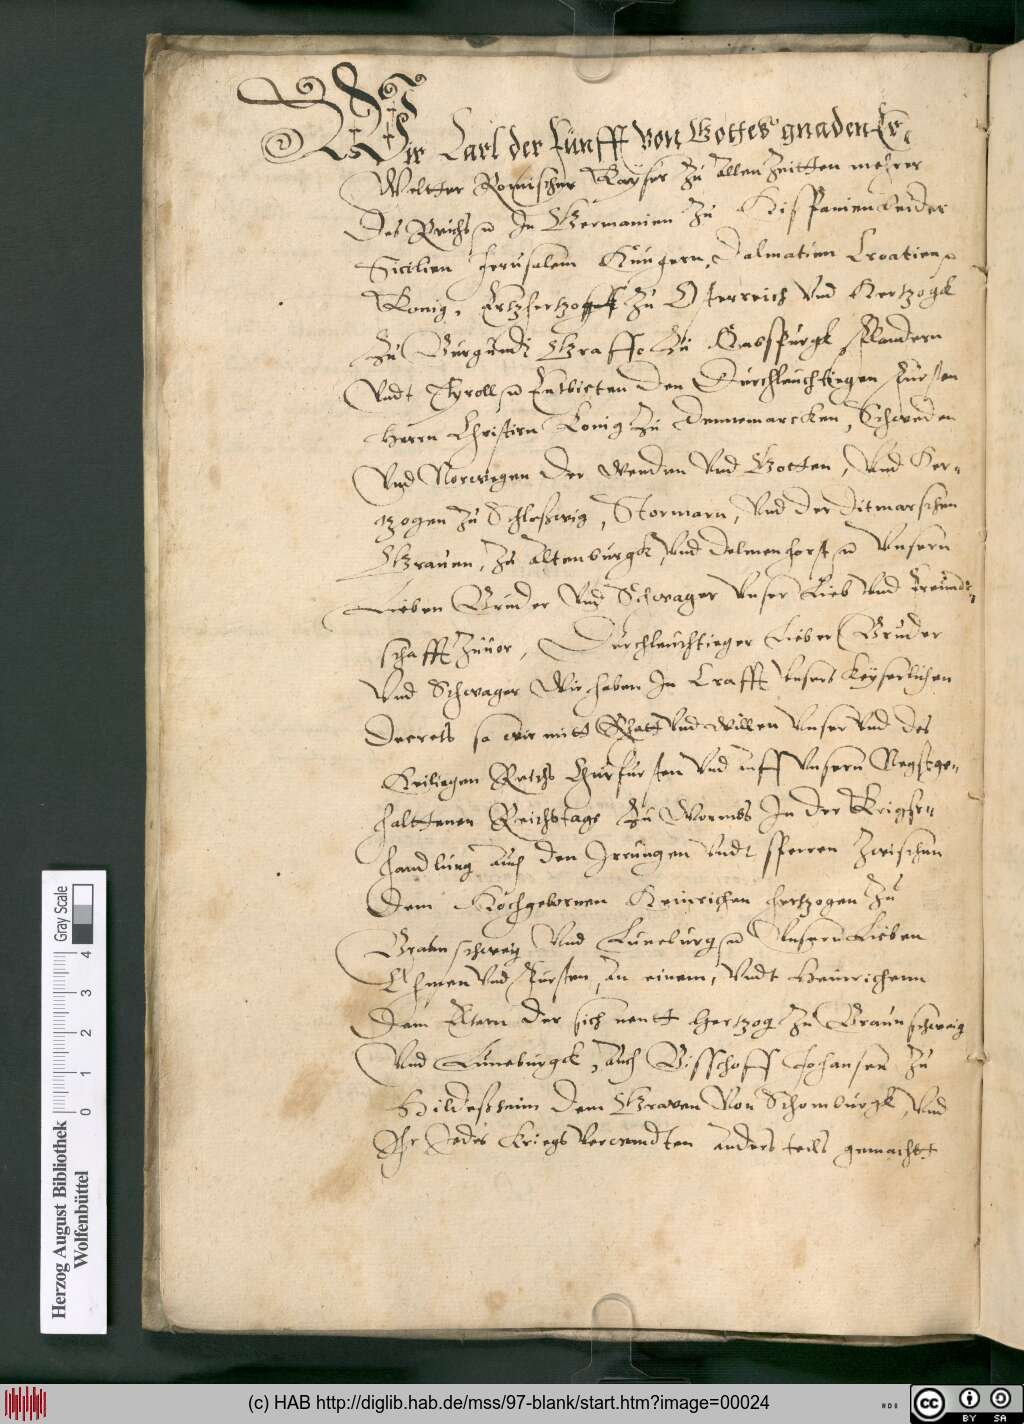 Wir Carl der Fünfft von Gottes gnaden Er-
Welter Romischer Kayser zu allen Zeitten mehrer
Des Reichs ꝛc In Germanien zu Hispanien beider
Sicilien Jerusalem Hungern, Dalmatien Croatien ꝛc
Konig, Ertzhertzogk zu Osterreich Vnd Hertzogk
zu Burgundi Graffe zu Habspurgk Flandern
Vndt Tyroll ꝛc Entbieten den Durchleuchtiegen Fursten
Herrn Christiern Konig zu Dennemarcken, Schweden
Vnd Norwegen der Wenden Vnd Gotten, Vnd Her-
tzogen zu Schleßwig, Stormarn, Vnd der Ditmarschen
Grauen, zu Altenburgk, Vnd Delmenhorst ꝛc Vnsern
Lieben Bruder Vnd Schwager Vnser Lieb Vnd freundt-
schafft zuuor, Durchleuchtieger Lieber Bruder
Vnd Schwager Wir haben In Crafft vnsers keyserlichen
Decrets so wir mitt Ratt Vnd willen Vnser Vnd des
Heiliegen Reichs Churfursten Vnd auff Vnserm Negstge-
halttenen Reichstage zu Wormbs In der Kriegs-
handlung auch den Irrungen Vndt sperren zwischen
Dem Hochgebornen Heinrichen Hertzogen zu
Braunschweig Vnd Luneburg ꝛc Vnserm Lieben
Ohmen Vnd Fursten, an einem, Vndt Heinrichenn
Dem Eltern der sich nentt Hertzog zu Braunschweig
Vnd Luneburgck, auch Bisschoff Johansen zu
Hildeßheim dem Grauen Von Schomburgk, Vnd
Ihr Jedes kriegs Verwandten anders teils gemacht
Herzog August Bibliothek
Wolfenbüttel
0 1 2 3 4
Gray Scale
(c) HAB http://diglib.hab.de/mss/97-blank/start.htm?image=00024
cc BY SA